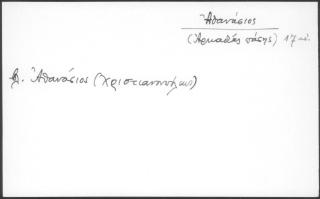 Ἀθανάσιος
(Ἀρκαδίας πάσης) 17 αἰ.
βλ. Ἀθανάσιος (Χριστιανουπόλεως)